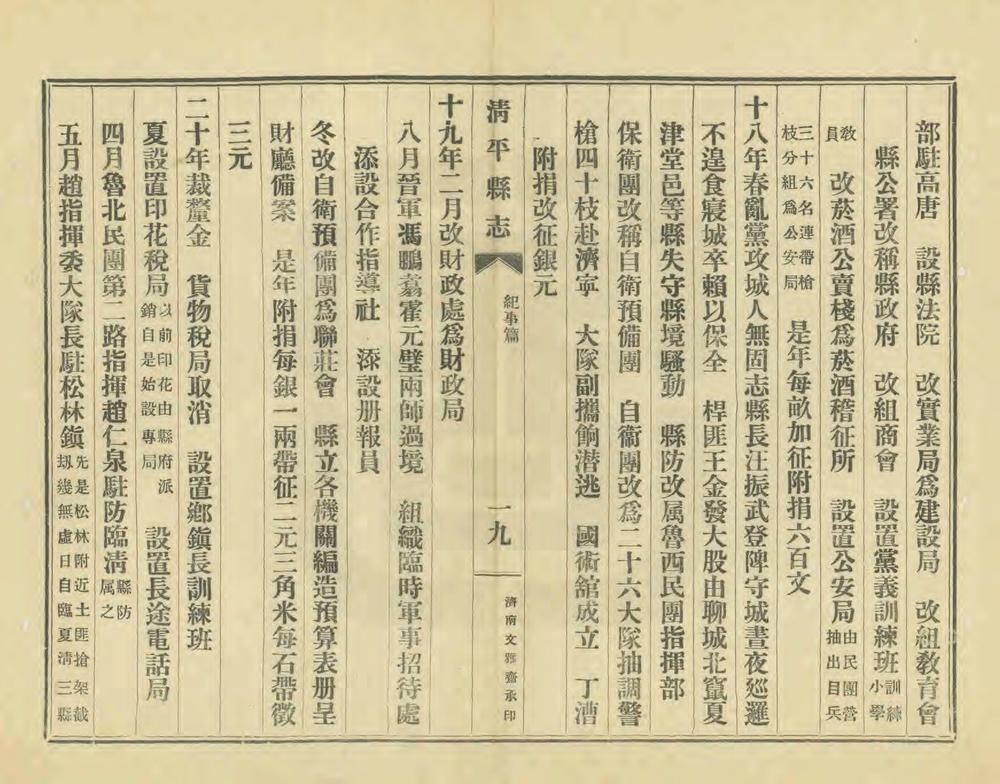 部駐高唐　設縣法院　改實業局爲建設局　改組敎育會
縣公署改稱縣政府　改組商會　設置黨義訓練班訓練小學
敎員　改菸酒公賣棧爲菸酒稽征所　設置公安局由民團營抽出目兵
三十六名連帶槍枝分組爲公安局　是年每畝加征附捐六百文
十八年春亂黨攻城人無固志縣長汪振武登陴守城晝夜巡邏
不遑食寢城卒賴以保全　桿匪王金發大股由聊城北竄夏
津堂邑等縣失守縣境騷動　縣防改属魯西民團指揮部
保衛團改稱自衛預備團　自衛團改爲二十六大隊抽調警
槍四十枝赴濟寧　大隊副攜餉潜逃　國術舘成立　丁漕
附捐改征銀元
清平縣志　紀事篇　一九　濟南文雅齋承印
十九年二月改財政處爲財政局
八月晉軍馮鵬翥霍元璧兩師過境　組織臨時軍事招待處
添設合作指導社　添設册報員
冬改自衛預備團爲聯莊會　縣立各機關編造預算表册呈
財廳備案　是年附捐每銀一兩帶征二元三角米每石帶徵
三元
二十年裁釐金　貨物稅局取消　設置鄉鎭長訓練班
夏設置印花稅局以前印花由縣府派銷自是始設專局　設置長途電話局
四月魯北民團第二路指揮趙仁泉駐防臨清縣防属之
五月趙指揮委大隊長駐松林鎭先是松林附近土匪搶架截刼幾無虛日自臨夏清三縣